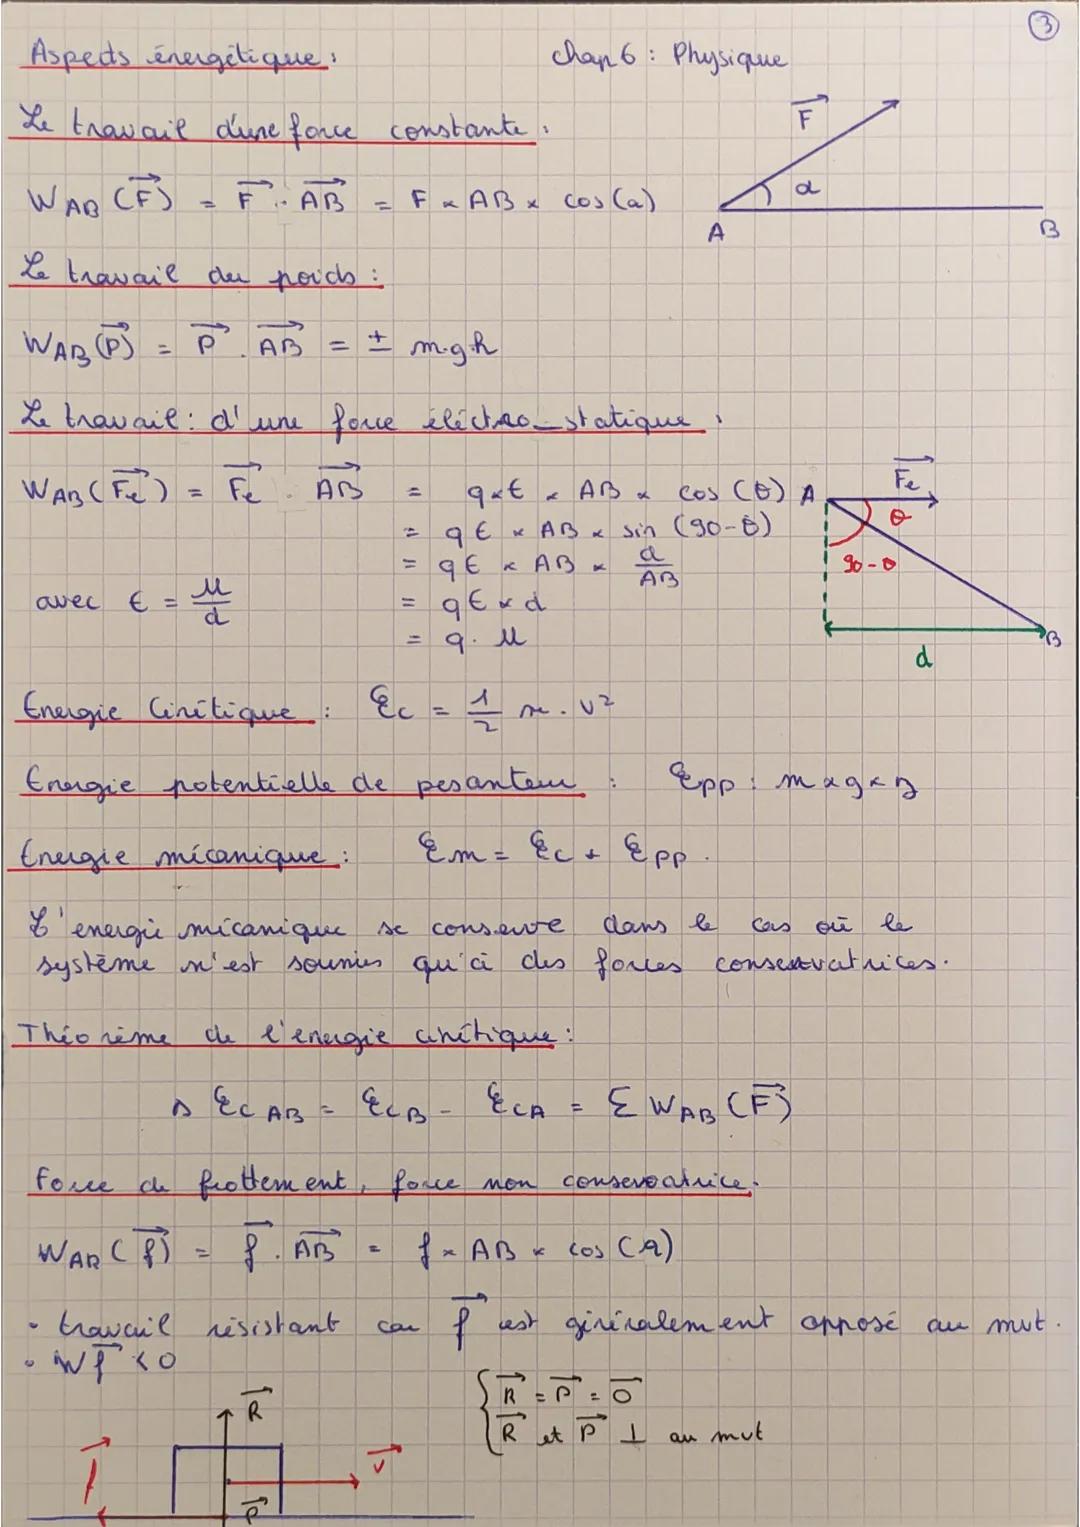 3
Aspects énergétique : chap 6 : Physique
Le travail d'une force constante :
W AB (F) = F . AB = F x AB x cos (a)
F
α
A B
Le travail du poids :
W AB (P) = P . AB = ± m.g.h
Le travail : d'une force éléctro-statique :
W AB (Fe) = Fe . AB = q x E x AB x cos (θ)
= q E x AB x sin (90-θ)
= q E x AB x d/AB
avec E = U/d = q E x d
= q . U
A Fe
θ
90-θ
B
d
Energie Cinétique : Ec = 1/2 m . v²
Energie potentielle de pesanteur : Epp : m x g x z
Energie mécanique : Em = Ec + Epp .
L'énergie mécanique se conserve dans le cas où le
système n'est soumis qu'à des forces conservatrices.
Théorème de l'énergie cinétique :
Δ Ec AB = Ec B - Ec A = Σ W AB (F)
Force de frottement, force non conservatrice.
W AB (f) = f . AB = f x AB x cos (a)
• travail résistant car f est généralement opposé au mvt.
• W f < 0
R = P = 0
R et P ⊥ au mvt
R
f
v
P